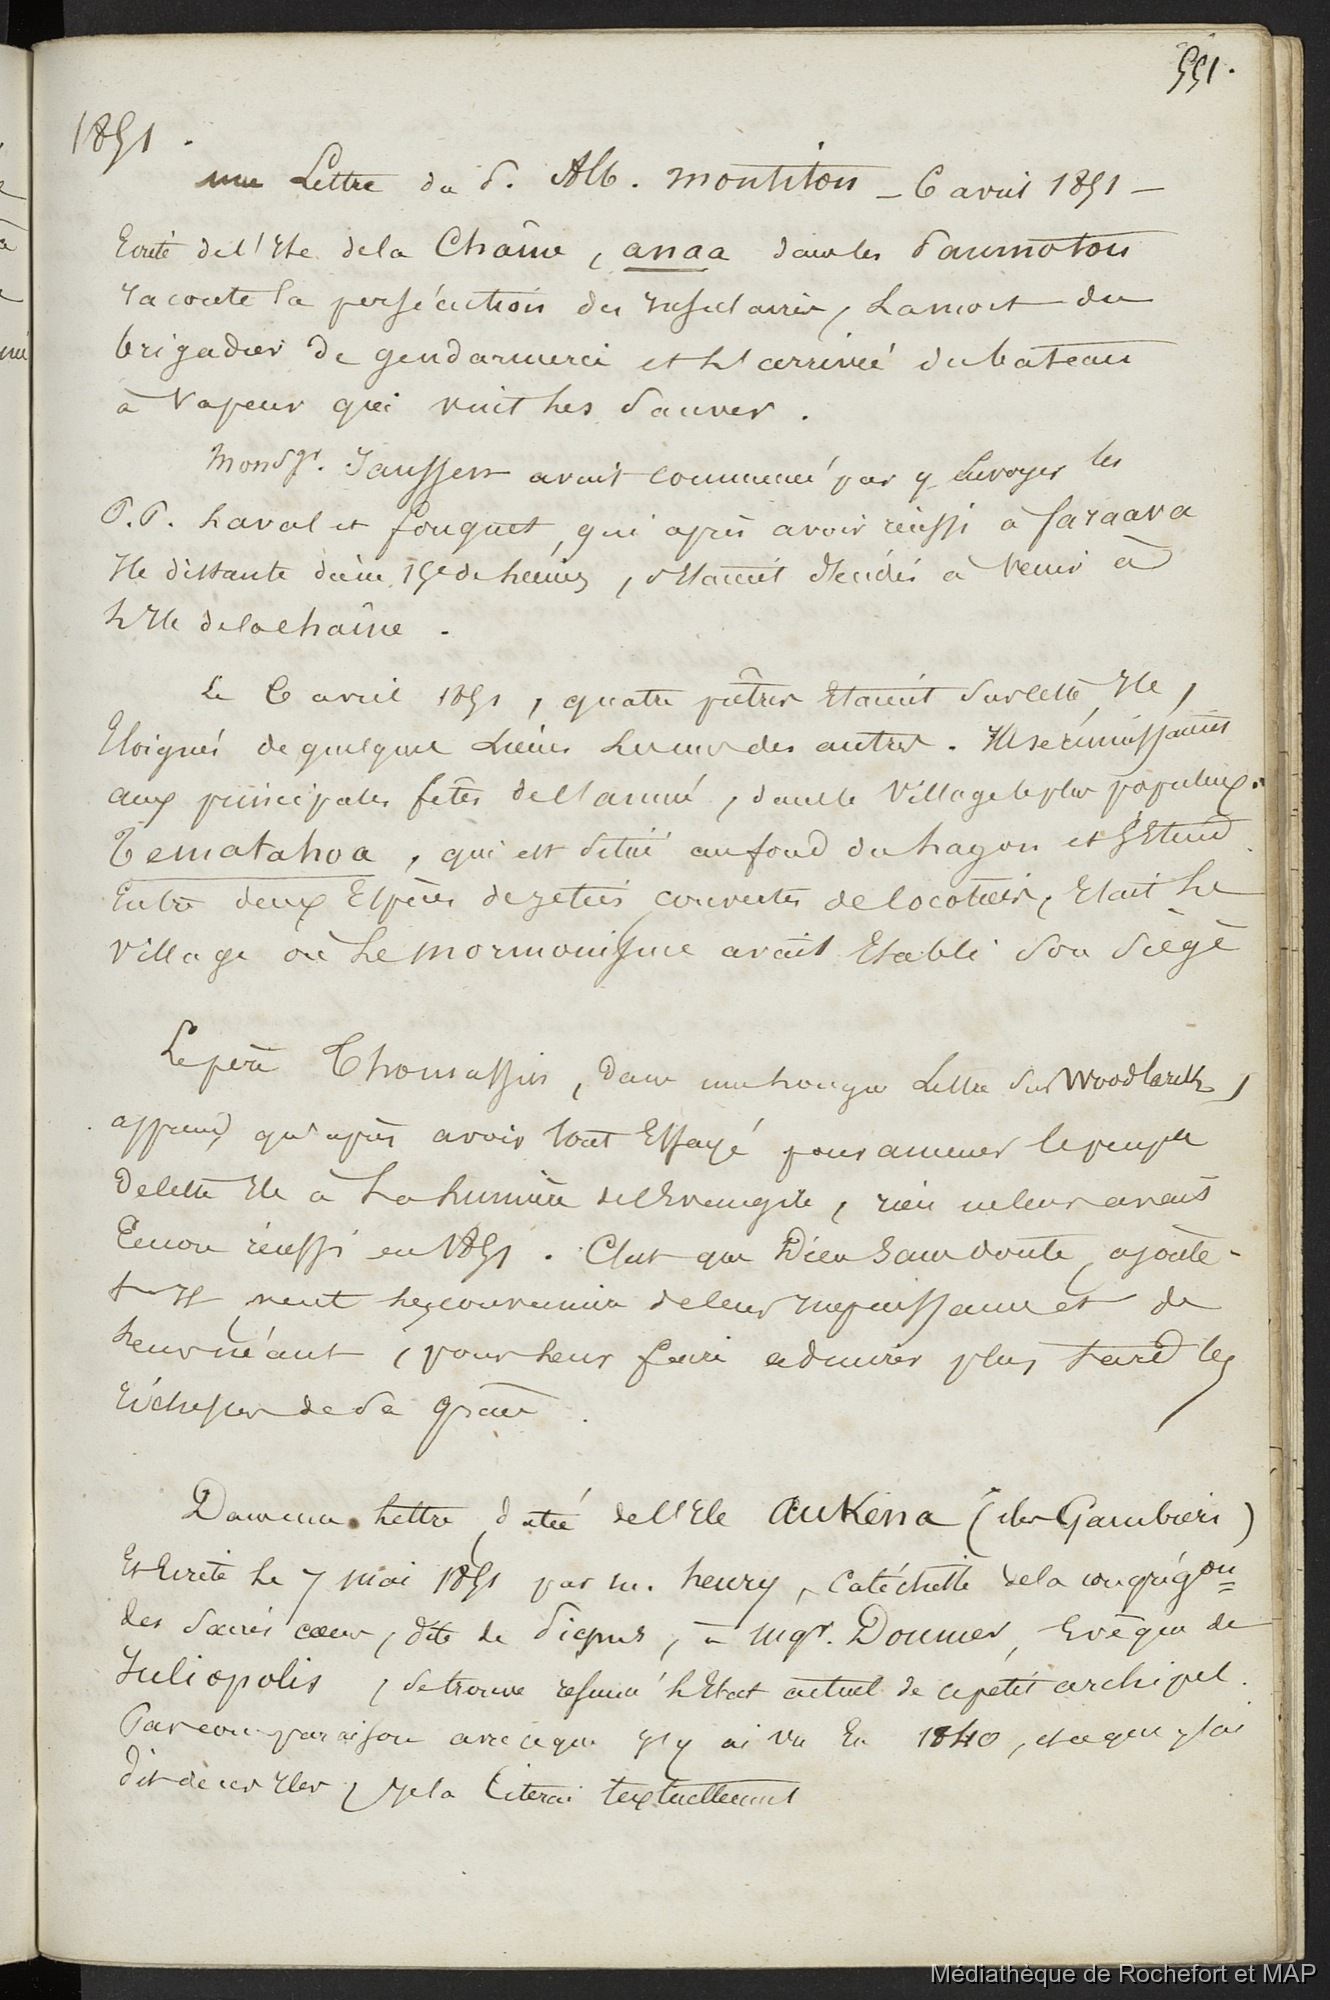 551.
1851.
une Lettre du P. Alb. Montiton — 6 avril 1851 —
Ecrite de l'Ile de la Chaîne, anaa dans les Paumotou
raconte la persécution des Insulaires, La mort du
brigadier de gendarmerie et L'arrivée du bateau
à Vapeur qui vint Les Sauver.
Monsgr. Jaussen avait commencé par y Envoyer les
P.P. Laval et fouquet, qui après avoir réussi à faraava
Ile distante d'une 15e de Lieues, s'Etaient décidés à venir à
L'Ile de la chaîne.
Le 6 avril 1851, quatre prêtres Etaient Sur cette Ile,
Eloignés de quelques Lieues Les uns des autres. Ils se réunissaient
aux principales fêtes de l'année, dans le Village le plus populeux.
Tematahoa, qui est Situé au fond du Lagon et s'Etend
Entre deux Espèces de jetées couvertes de Cocotiers, Etait Le
Village où Le mormonisme avait Etabli Son Siège
Le père Thomassin, dans une Longue Lettre Sur Woodlarck,
apprend qu'après avoir tout Essayé pour amener le peuple
de cette Ile à La Lumière de l'Evangile, rien ne leur avait
Encore réussi en 1851. C'est que Dieu Sans doute, ajoute-
t-Il veut Les convaincre de leur Impuissance et de
Leur néant, pour Leur faire admirer plus tard les
richesses de Sa Grâce.
Dans une Lettre, datée de l'Ile Aukena (iles Gambiers)
Et Ecrite Le 7 Mai 1851 par m. henry, Catéchiste de la congrégon
des Sacrés cœurs, dite de Picpus, à Mgr. Doumer, Evêque de
Juliopolis, Se trouve résumé L'Etat actuel de ce petit archipel.
Par comparaison avec ce que J'y ai vu En 1840, et ce que j'ai
dit de ces Iles, Je la Citerai textuellement
Médiathèque de Rochefort et MAP